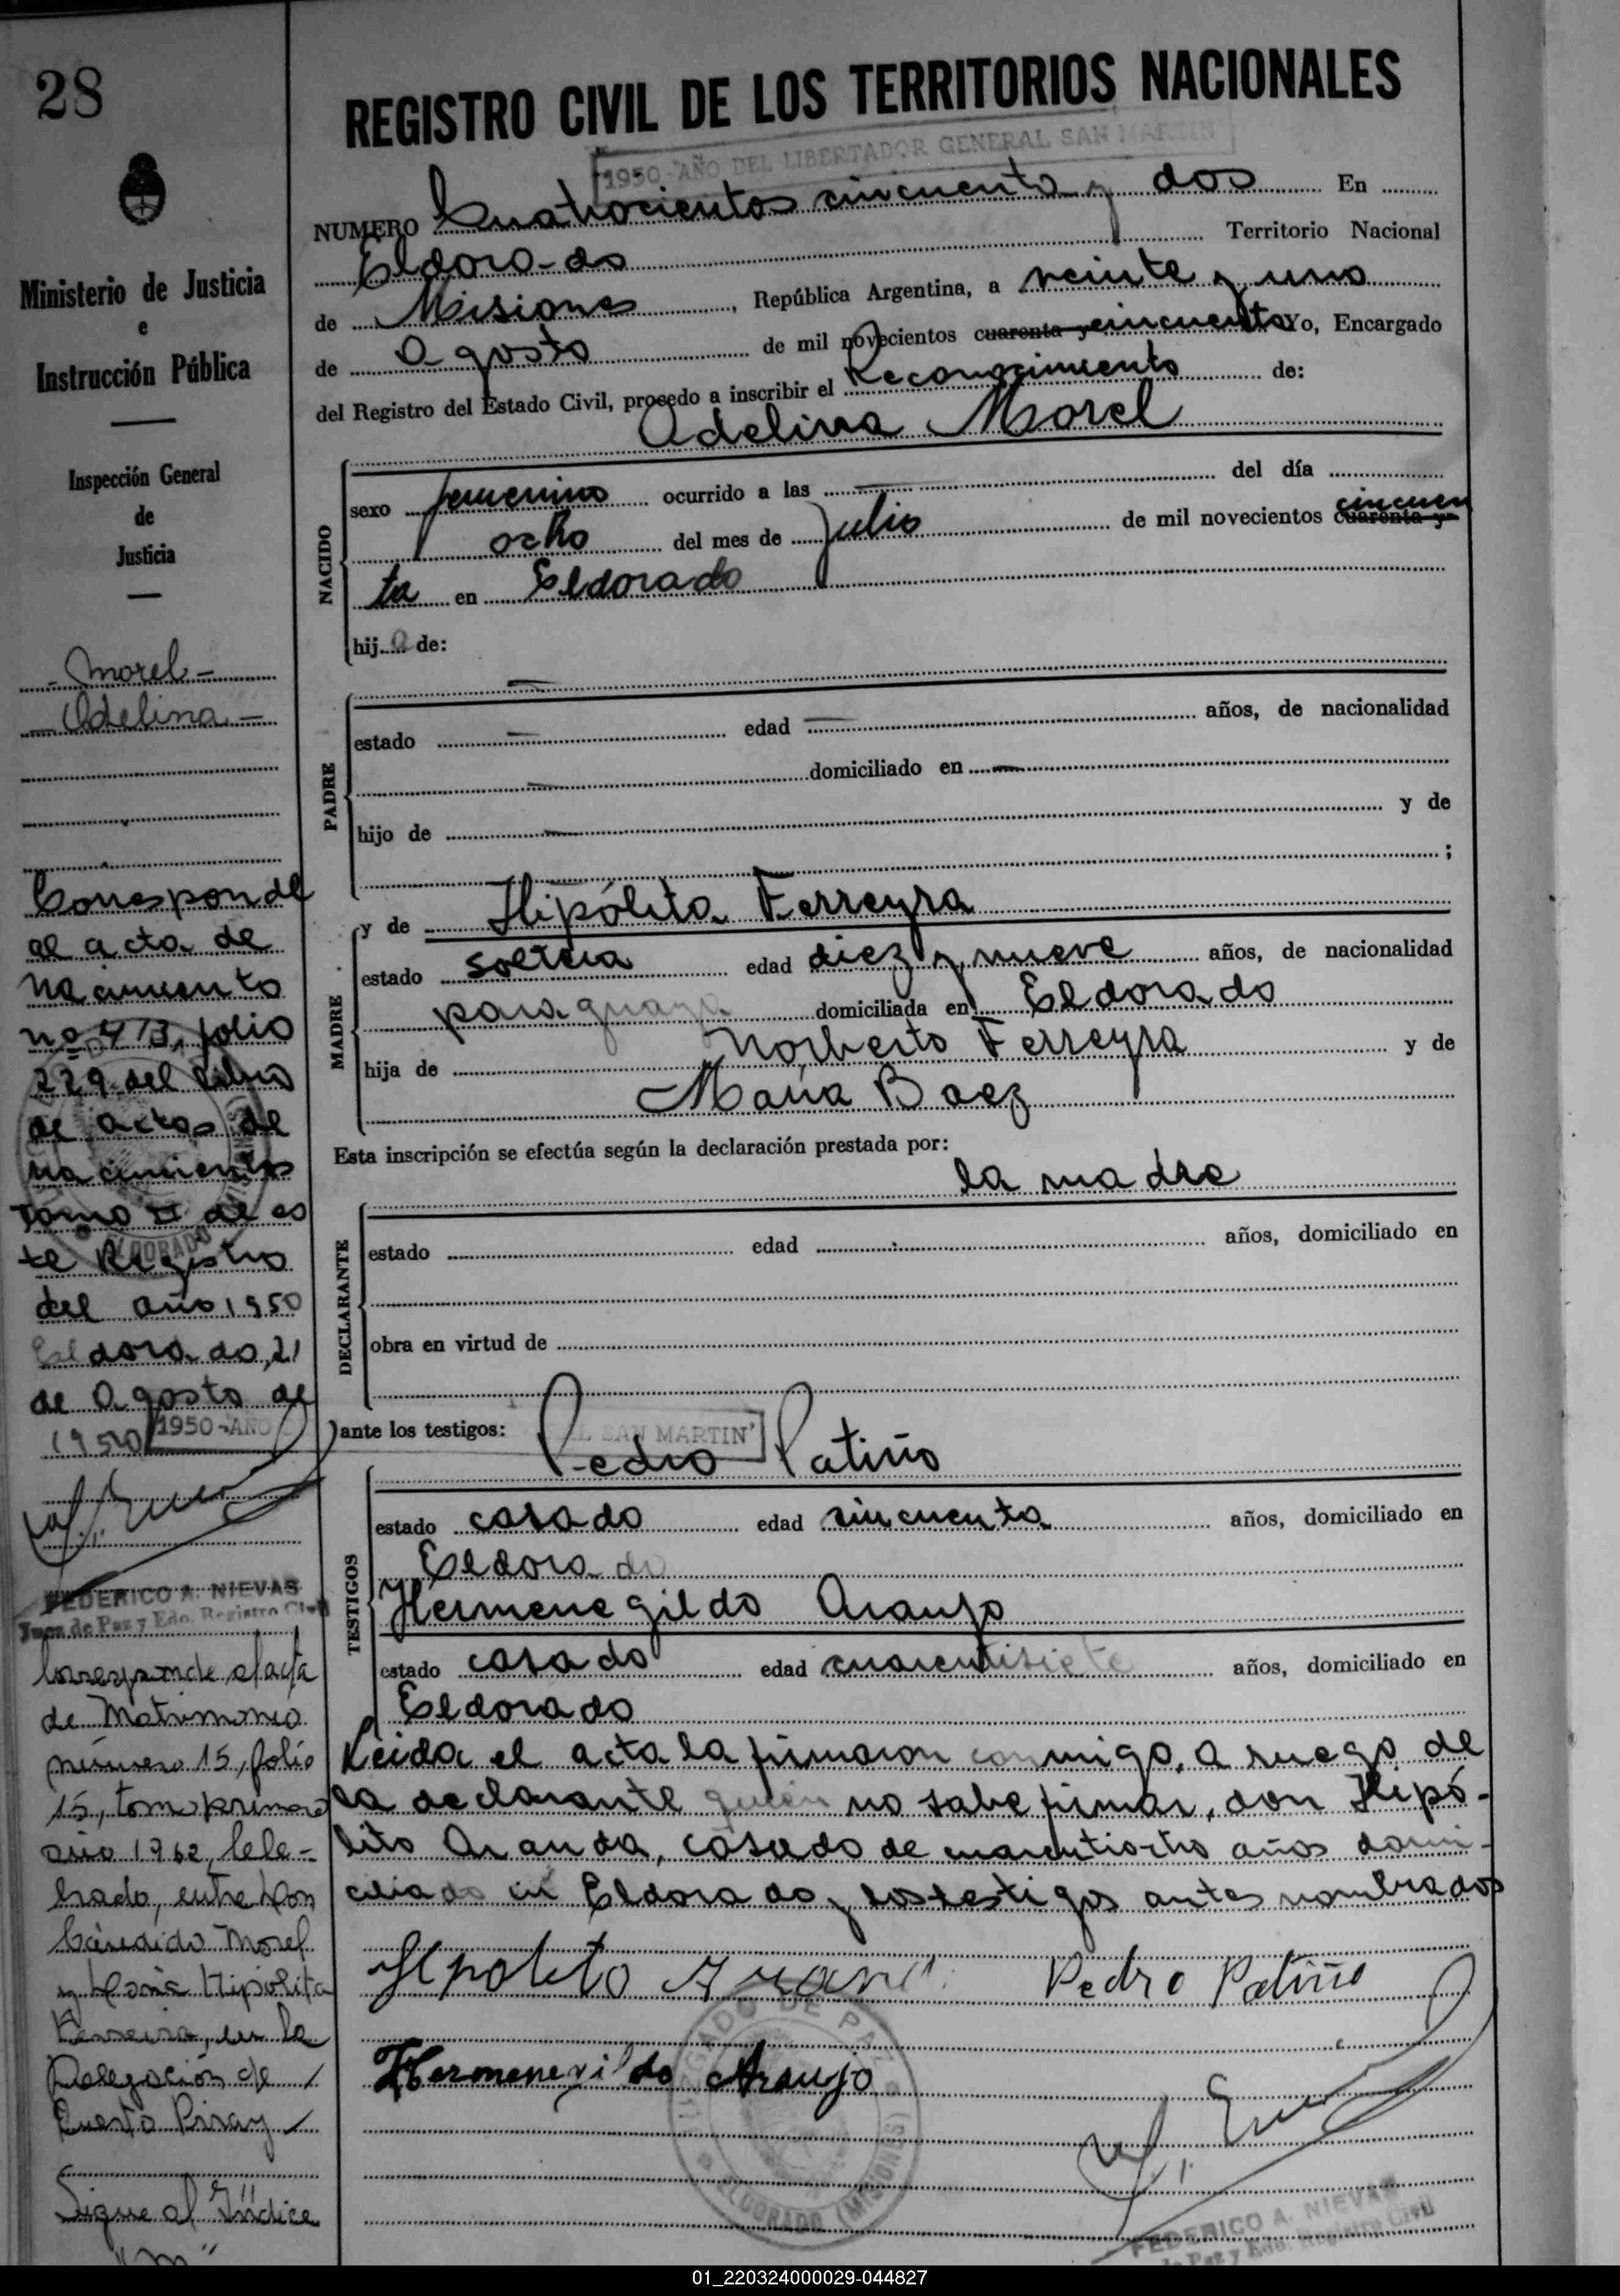 28
Ministerio de Justicia
e
Instrucción Pública
Inspección General
de
Justicia
- Morel -
- Adelina -
Corresponde
al acta de
nacimiento
nº 413, folio
229 del libro
de actas de
nacimientos
Tomo II de es
te Registro
del año 1950
Eldorado, 21
de Agosto de
1950
1950-AÑO
FEDERICO A. NIEVAS
Juez de Paz y Edo. Registro Civil
Corresponde al acta
de Matrimonio
número 15, folio
15, tomo primero
año 1962, cele-
brado, entre Don
Cándido Morel
y Doña Hipólita
Ferreira, en la
Delegación de
Puerto Piray
Sigue al Indice
"M"
REGISTRO CIVIL DE LOS TERRITORIOS NACIONALES
1950-AÑO DEL LIBERTADOR GENERAL SAN MARTIN
NUMERO Cuatrocientos cincuenta y dos En
Eldorado Territorio Nacional
de Misiones, República Argentina, a veinte y uno
de Agosto de mil novecientos cuarenta y cincuenta Yo, Encargado
del Registro del Estado Civil, procedo a inscribir el Reconocimiento de:
Adelina Morel
NACIDO
sexo femenino ocurrido a las del día
ocho del mes de Julio de mil novecientos cuarenta y cincuen
ta en Eldorado
hija de:
PADRE
estado edad años, de nacionalidad
domiciliado en
hijo de y de
;
MADRE
y de Hipólita Ferreyra
estado soltera edad diez y nueve años, de nacionalidad
paraguaya domiciliada en Eldorado
hija de Norberto Ferreyra y de
María Baez
Esta inscripción se efectúa según la declaración prestada por:
la madre
DECLARANTE
estado edad años, domiciliado en
obra en virtud de
ante los testigos: Pedro Patiño
SAN MARTIN
TESTIGOS
estado casado edad cincuenta años, domiciliado en
Eldorado
Hermenegildo Araujo
estado casado edad cuarentisiete años, domiciliado en
Eldorado
Leida el acta la firmaron conmigo, a ruego de
la declarante quien no sabe firmar, don Hipó-
lito Aranda, casado de cuarentiocho años domi-
ciliado en Eldorado y los testigos antes nombrados
Hipolito Aranda Pedro Patiño
Hermenegildo Araujo
JUZGADO DE PAZ
ELDORADO (MISIONES)
FEDERICO A. NIEVAS
de Paz y Edo. Registro Civil
01_220324000029-044827